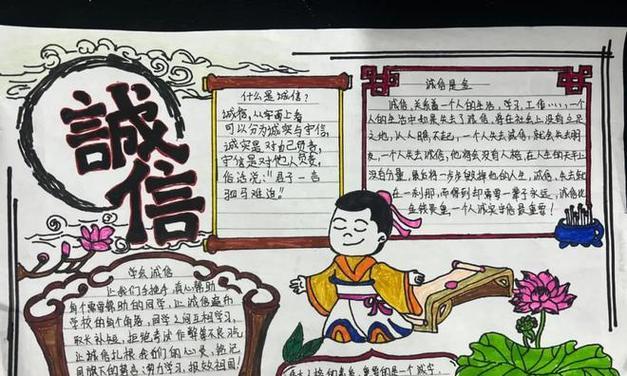 誠信
什么是诚信？
诚信，从字面上看
可以分为诚实与守信，
诚实是对自己负责，
守信是对他人负责，
俗话说："君子一言
驷马难追。"
诚信是金
诚信，关系着一个人的生活，学习，工作……一个
人的生活中如果失去了诚信，等在社会上没有立足
之地，从人瞧不起，一个人失去诚信，就会失去朋
友，一个人失去诚信，他将会没有人格，在人生的天平上
没有分量，最终将一步步毁掉他的人生，诚信，失去
在一刹那，而得到却需要一辈子永远，诚信比
金钱贵重，一个人诚实守信最重要！
学会诚信
让我们手挽手，真心帮助
每个需要帮助的同学，让诚信遍布
学校的每个角落，同学之间互相学习，
取长补短，拒绝考试作弊等不良
让诚信扎根我们的心灵，铭记
国旗下的誓言：努力学习，报效祖国！
的是一个诚字